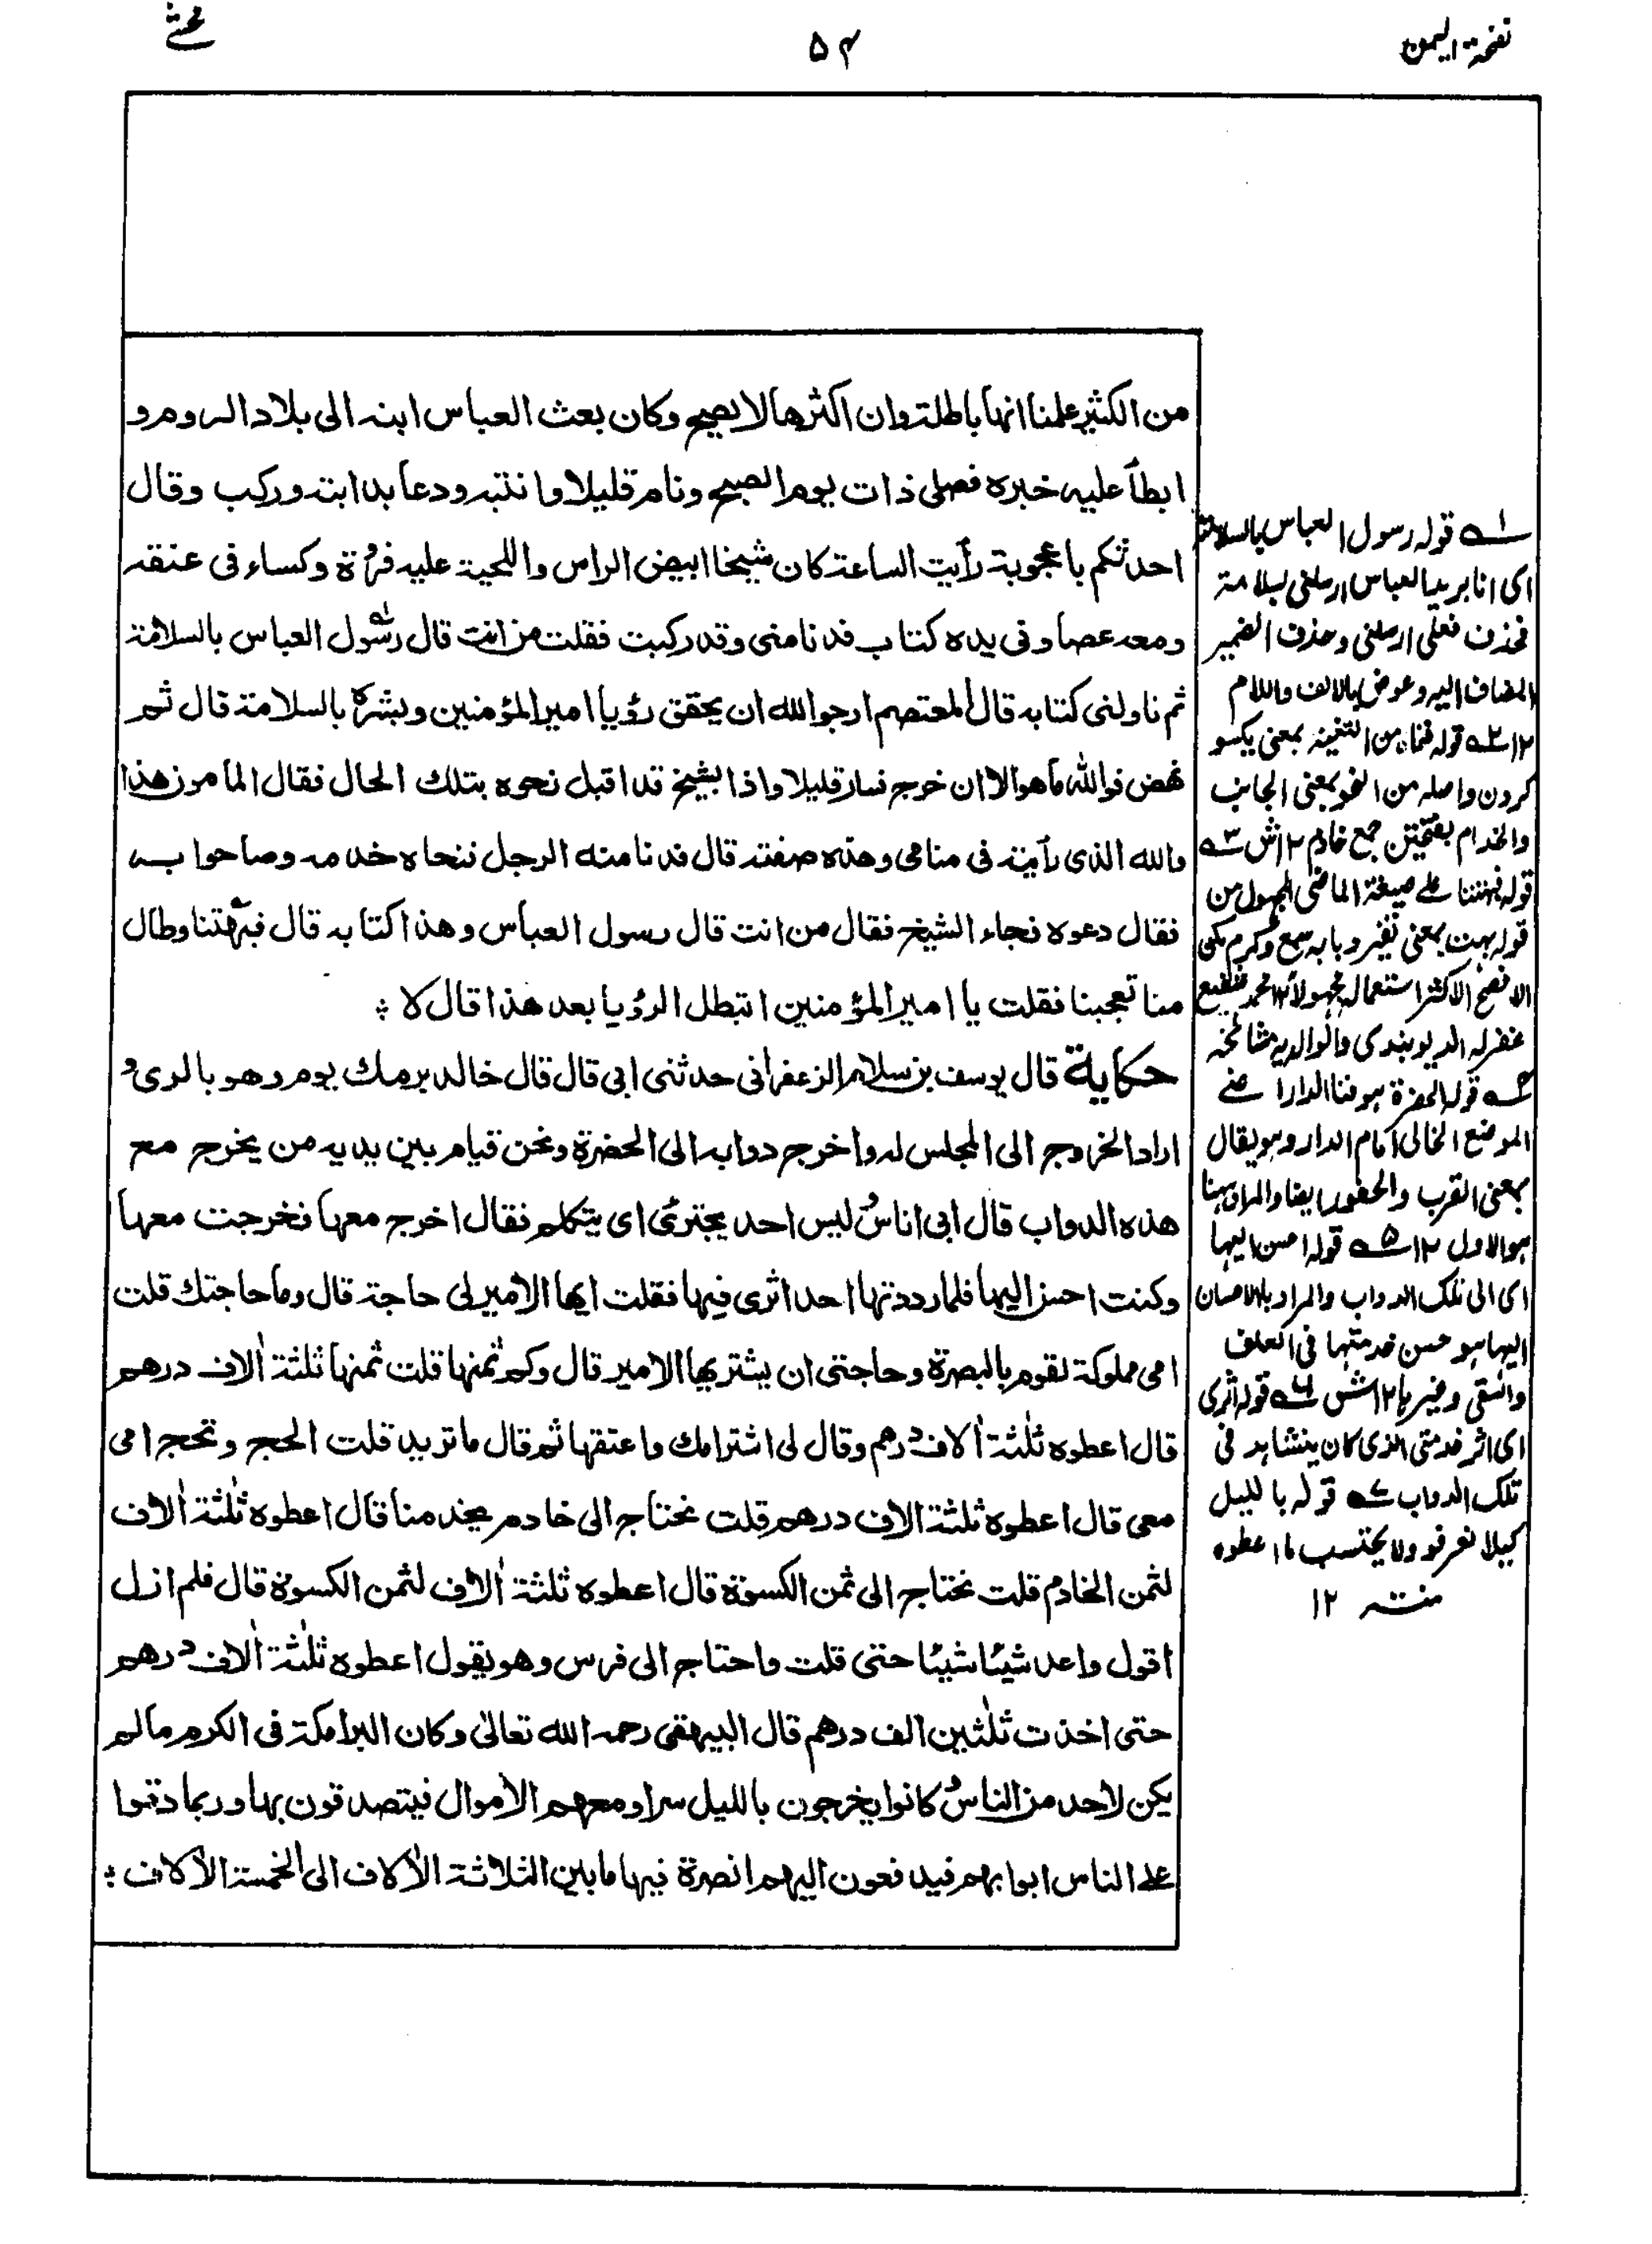 نفحة اليمن
۵۴
محشے
من الكثير علمنا انها باطلة وان اكثرها لا يصح وكان بعث العباس ابنه الى بلاد الروم و
ابطأ عليه خبره فصلى ذات يوم الصبح ونام قليلا وانتبه ودعا بدابته وركب وقال
احدثكم باعجوبة رأيت الساعة كان شيخا ابيض الراس واللحية عليه فروة وكساء فى عنقه
ومعه عصا وفى يده كتاب فدنا منى وقد ركبت فقلت من انت قال رسول العباس بالسلامة
ثم ناولنى كتابه قال المعتصم ارجو الله ان يحقق رؤيا امير المؤمنين ويشره بالسلامة قال ثم
نهض فوالله ما هو الا ان خرج فسار قليلا واذا بشيخ قد اقبل نحوه بتلك الحال فقال المامون هذا
والله الذى رأيته فى منامى وهذه صفته قال فدنا منه الرجل فنحاه خدمه وصاحوا به
فقال دعوه فجاء الشيخ فقال من انت قال رسول العباس وهذا كتابه قال فبهتنا وطال
منا تعجبنا فقلت يا امير المؤمنين اتبطل الرؤيا بعد هذا قال لا ؞
حكاية قال يوسف بن سلام الزعفرانى حدثنى ابى قال قال خالد برمك يوم وهو بالرى و
اراد الخروج الى المجلس له واخرج دوابه الى الحضرة ونحن قيام بين يديه من يخرج مع
هذه الدواب قال ابى اناس ليس احد يجترئ اى يتكلم فقال اخرج معها فخرجت معها
وكنت احسن اليها فلما رددتها احد اثرى فيها فقلت ايها الامير لى حاجة قال وما حاجتك قلت
امى مملوكة لقوم بالبصرة وحاجتى ان يشتريها الامير قال وكم ثمنها قلت ثمنها ثلثة الاف درهم
قال اعطوه ثلثة الاف درهم وقال لى اشتر امك واعتقها ثم قال ما تريد قلت الحج وتحج امى
معى قال اعطوه ثلثة الاف درهم قلت نحتاج الى خادم يخدمنا قال اعطوه ثلثة الاف
لثمن الخادم قلت نحتاج الى ثمن الكسوة قال اعطوه ثلثة الاف لثمن الكسوة قال فلم ازل
اقول واعد شيئا شيئا حتى قلت واحتاج الى فرس وهو يقول اعطوه ثلثة الاف درهم
حتى اخذت ثلثين الف درهم قال البيهقى رحمه الله تعالى وكان البرامكة فى الكرم مالم
يكن لاحد من الناس كانوا يخرجون بالليل سرا ومعهم الاموال فيتصدقون بها وربما دقوا
على الناس ابوابهم فيدفعون اليهم انصرة فيها ما بين الثلاثة الالاف الى الخمسة الالاف ؞
۱ه قوله رسول العباس بالسلامة
اى انا بريد العباس ارسلنى بسلامته
فحذف فعلى ارسلنى وحذف الضمير
المضاف اليه وعوض بالالف واللام
۱۲ ۲ه قوله فنحاه من التنحية بمعنى يكسو
كردن واصله من النحو بمعنى الجانب
والخدام بفتحتين جمع خادم ۱۲ ش ۳ه
قوله فبهتنا على صيغة الماضى المجهول من
قوله بهت بمعنى تغير وبابه سمع وكرم لكن
الافصح الاكثر استعماله مجهولا ۱۲ محمد شفيع
غفر له الديوبندى ولوالديه ومشائخه
۴ه قوله الحضرة هو فناء الدار اعنے
الموضع الخالى امام الدار وهو يقال
بمعنى القرب والحضور ايضا والمراد ههنا
هو الاول ۱۲ ۵ه قوله احسن اليها
اى الى تلك الدواب والمراد بالاحسان
اليها هو حسن خدمتها فى العلف
والسقى وغيرها ۱۲ ش ۶ه قوله اثرى
اى اثر خدمتى الذى كان يشاهد فى
تلك الدواب ۷ه قوله بالليل
كيلا نعرفو ولا يحتسب ما اعطوه
منته ۱۲